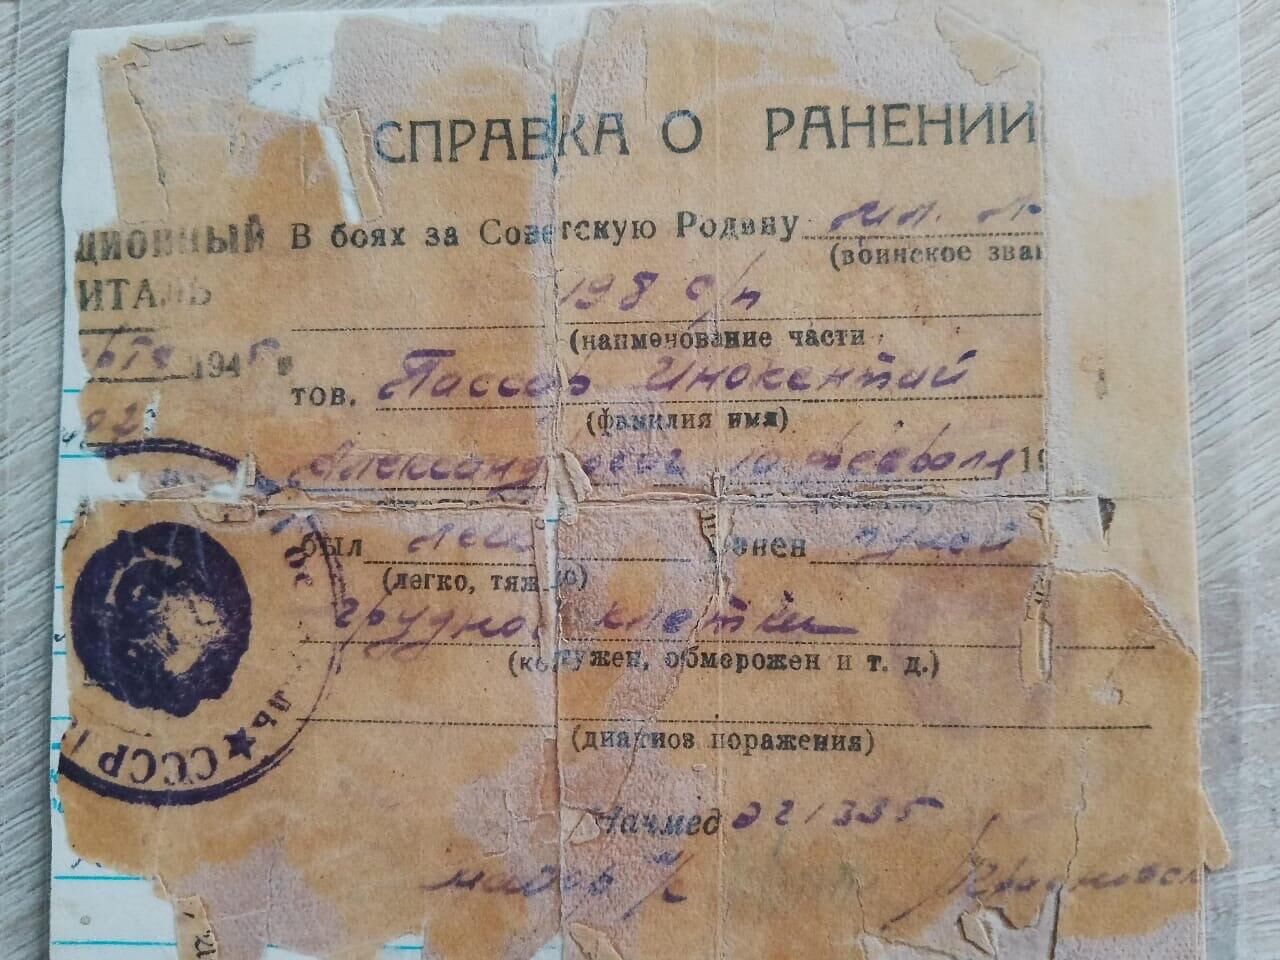 СПРАВКА О РАНЕНИИ
ЦИОННЫЙ В боях за Советскую Родину мл.
(воинское зва
ИТАЛЬ
198 с/п
(наименование части
194
тов. Пассар Инокентий
(фамилия имя)
Александрович 10 февраля 19
был ранен пулей
(легко, тяжело)
грудной клетки
(контужен, обморожен и т. д.)
(диагноз поражения)
ЛЬ ★ СССР
Начмед
майор